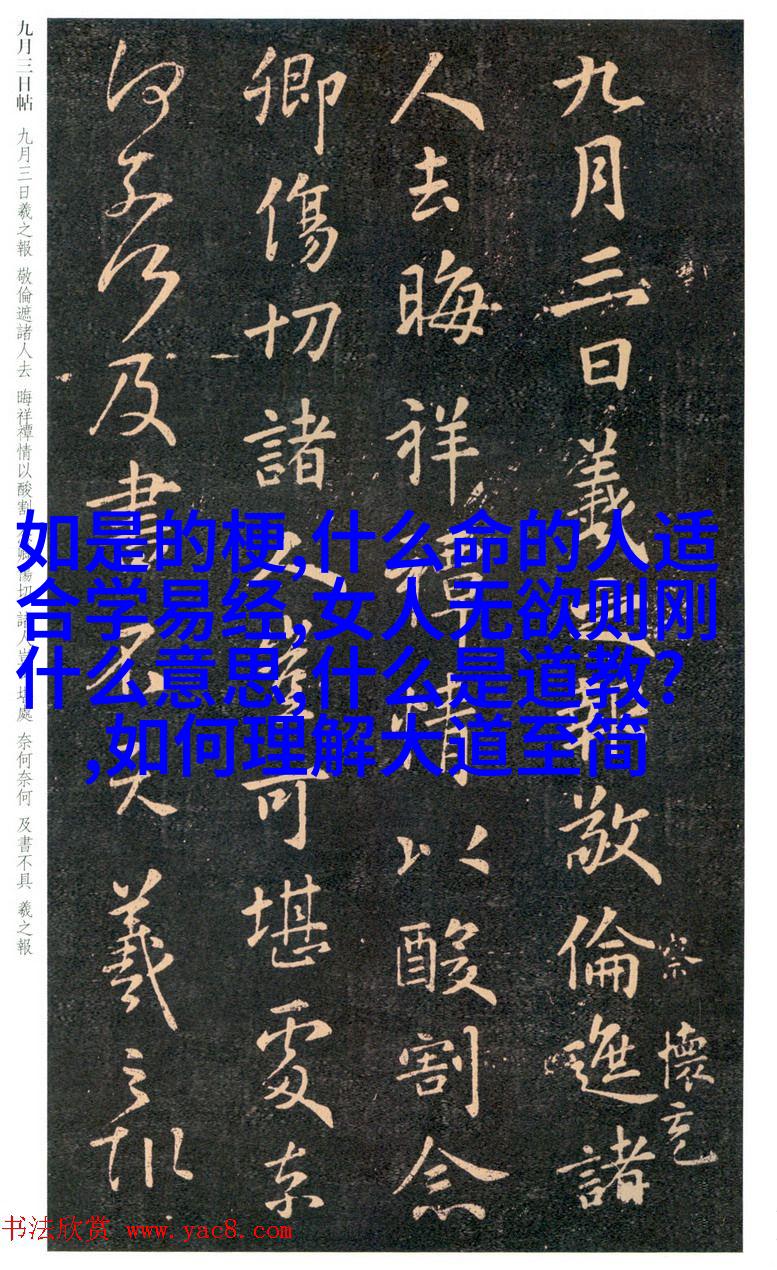 九月三日帖 九月三日羲之報 敬倫遮諸人去 晦祥禫情以酸割
奈何奈何 及書不具 羲之報
九月三日羲之報敬倫遮諸
人去晦祥禫情以酸割念
卿傷切諸人豈可堪處奈
何奈何及書不具羲之報
察 懷充
如是的梗,什么命的人适
合学易经,女人无欲则刚
什么意思,什么是道教?
,如何理解大道至简
书法欣赏 www.yac8.com